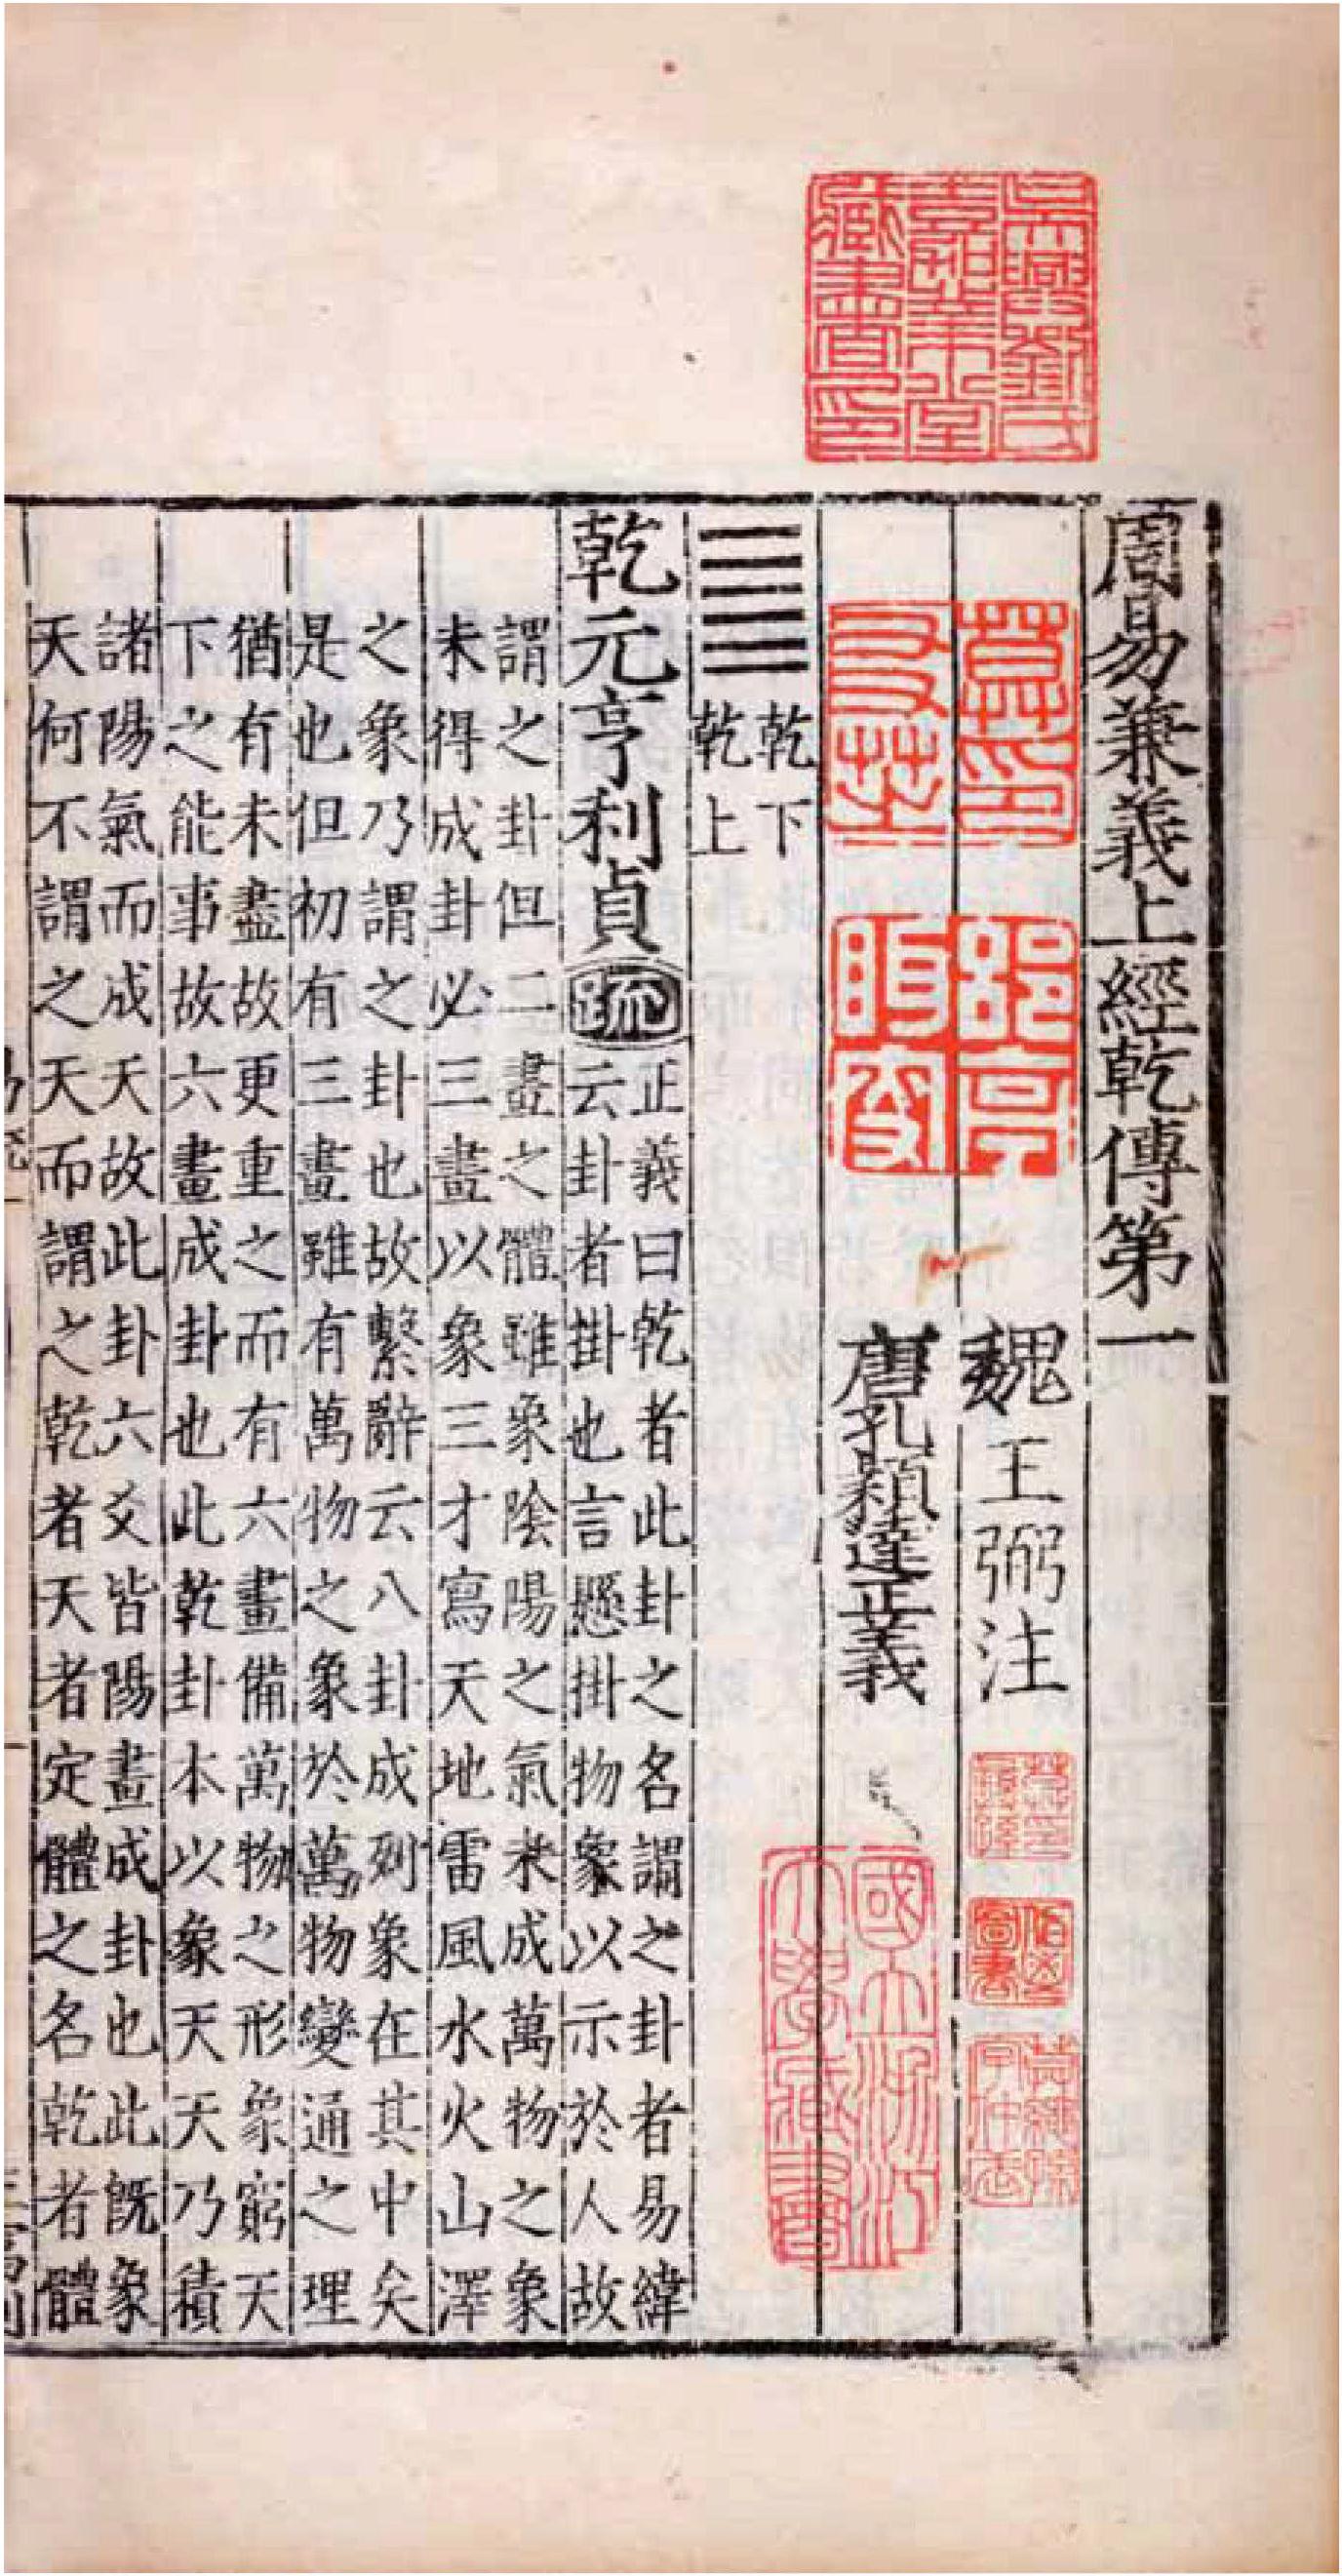 周易兼義上經乾傳第一
魏王弼注
唐孔穎達正義
乾下
乾上
乾元亨利貞疏
正義曰乾者此卦之名謂之卦者易緯
云卦者掛也言懸掛物象以示於人故
謂之卦但二畫之體雖象陰陽之氣未成萬物之象
未得成卦必三畫以象三才寫天地雷風水火山澤
之象乃謂之卦也故繫辭云八卦成列象在其中矣
是也但初有三畫雖有萬物之象於萬物變通之理
猶有未盡故更重之而有六畫備萬物之形象窮天
下之能事故六畫成卦也此乾卦本以象天天乃積
諸陽氣而成天故此卦六爻皆陽畫成卦也此既象
天何不謂之天而謂之乾者天者定體之名乾者體
吳興劉氏
嘉業堂
藏書印
莫印
友芝
郘亭
眲叟
國立浙江
大學藏書